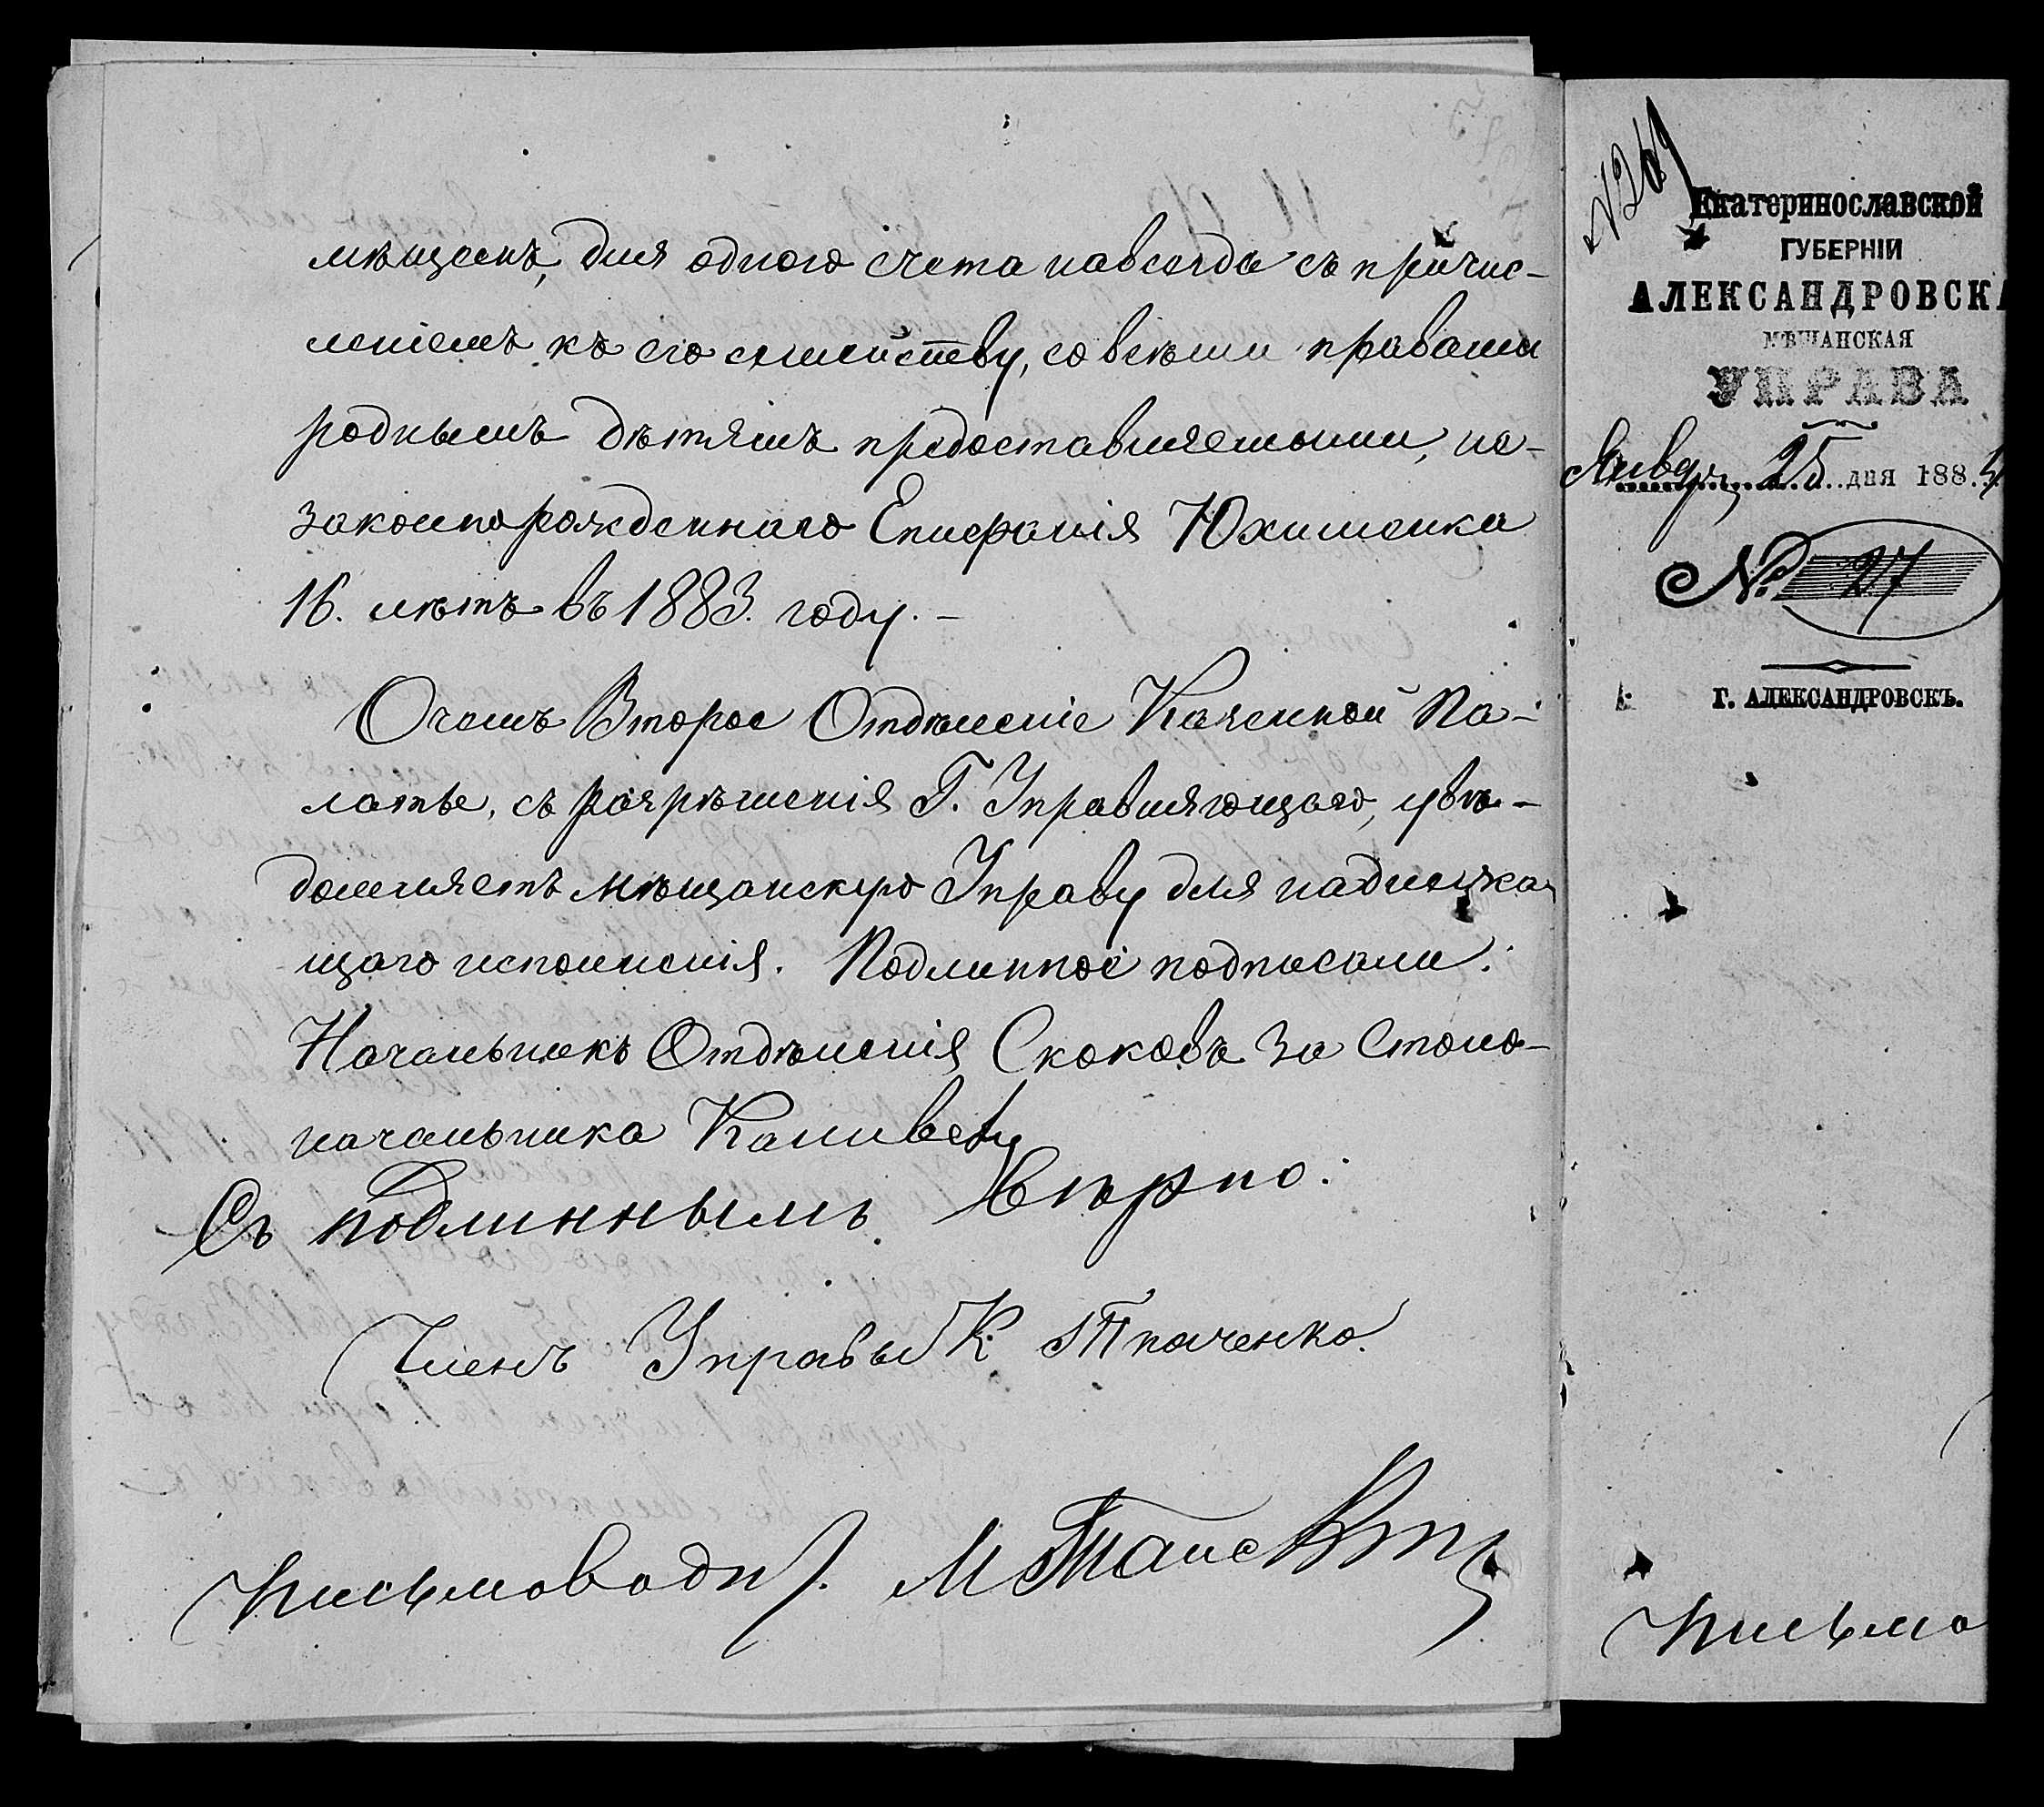 мѣщанъ, для одного счета навсегда съ причис-
леніемъ къ его семейству, со всѣми правами
роднымъ дѣтямъ предоставляемыми, не-
законнорожденнаго Епифанія Юхименка
16. лѣтъ въ 1883. году. –
О чемъ Второе Отдѣленіе Казенной Па-
латы, съ разрѣшенія Г. Управляющаго, увѣ-
домляетъ Мѣщанскую Управу для надлежа-
щаго исполненія. Подлинное подписали:
Начальникъ Отдѣленія Скоковъ За Столо-
начальника
Съ подлиннымъ Вѣрно:
Членъ Управы К Ткаченко.
Письмовод
№ 269
Екатеринославской
ГУБЕРНІИ
АЛЕКСАНДРОВСКА
МѢЩАНСКАЯ
УПРАВА
Январ 25 дня 188.4
№ 27
Г. АЛЕКСАНДРОВСКЪ.
Письмо